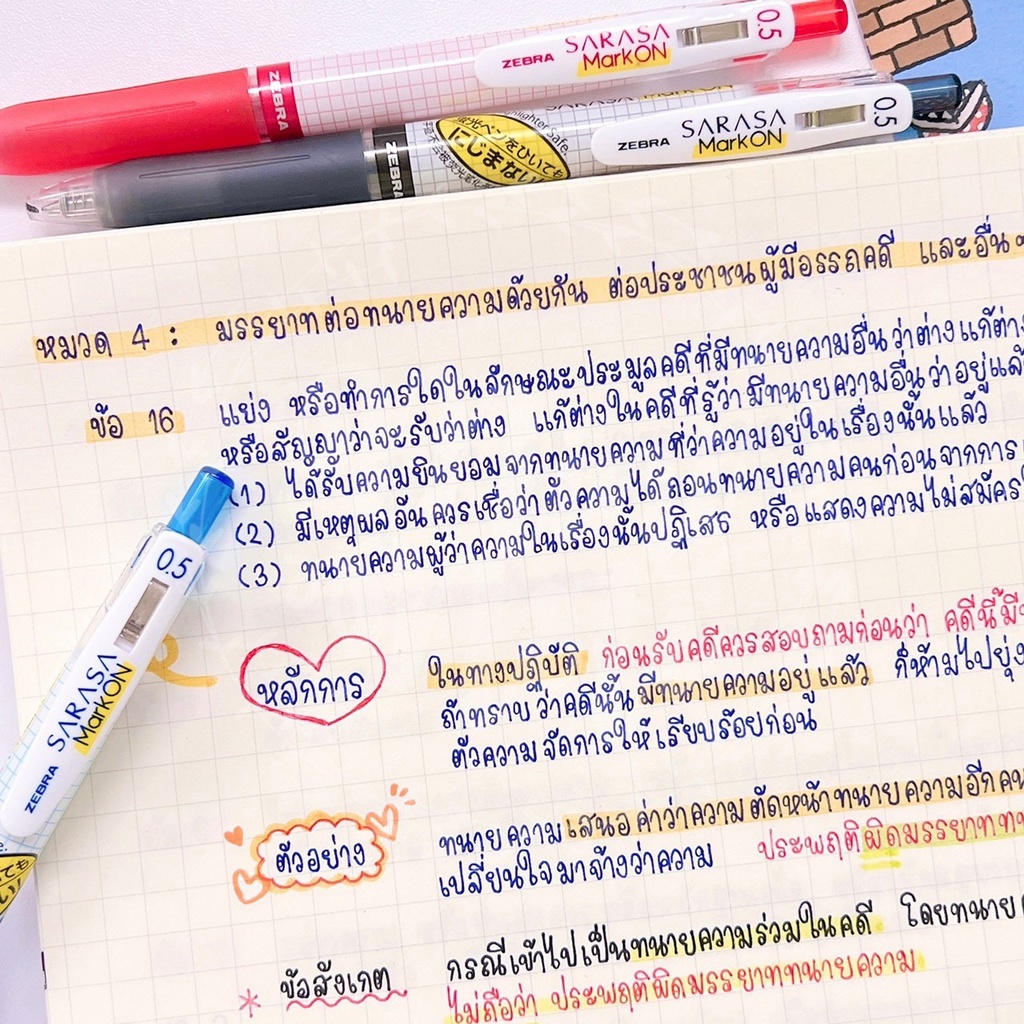 ZEBRA SARASA MarkON 0.5
ZEBRA
ZEBRA SARASA MarkON 0.5
ZEBRA
にじまない
หมวด 4 : มรรยาทต่อทนายความด้วยกัน ต่อประชาชนผู้มีอรรถคดี และอื่น
ข้อ 16 แย่ง หรือทำการใดในลักษณะประมูลคดีที่มีทนายความอื่นว่าต่างแก้ต่าง
หรือสัญญาว่าจะรับว่าต่าง แก้ต่างในคดีที่รู้ว่ามีทนายความอื่นว่าอยู่แล้
(1) ได้รับความยินยอมจากทนายความที่ว่าความอยู่ในเรื่องนั้นแล้ว
(2) มีเหตุผลอันควรเชื่อว่าตัวความได้ถอนทนายความคนก่อนจากการ
(3) ทนายความผู้ว่าความในเรื่องนั้นปฏิเสธ หรือแสดงความไม่สมัคร
0.5
SARASA
MarkON
ZEBRA
หลักการ ในทางปฏิบัติ ก่อนรับคดีควรสอบถามก่อนว่า คดีนี้มี
ถ้าทราบว่าคดีนั้นมีทนายความอยู่แล้ว ก็ห้ามไปยุ่ง
ตัวความจัดการให้เรียบร้อยก่อน
ตัวอย่าง ทนายความเสนอค่าว่าความตัดหน้าทนายความอีกคน
เปลี่ยนใจมาจ้างว่าความ ประพฤติผิดมรรยาทท
* ข้อสังเกต กรณีเข้าไปเป็นทนายความร่วมในคดี โดยทนาย
ไม่ถือว่า ประพฤติผิดมรรยาททนายความ